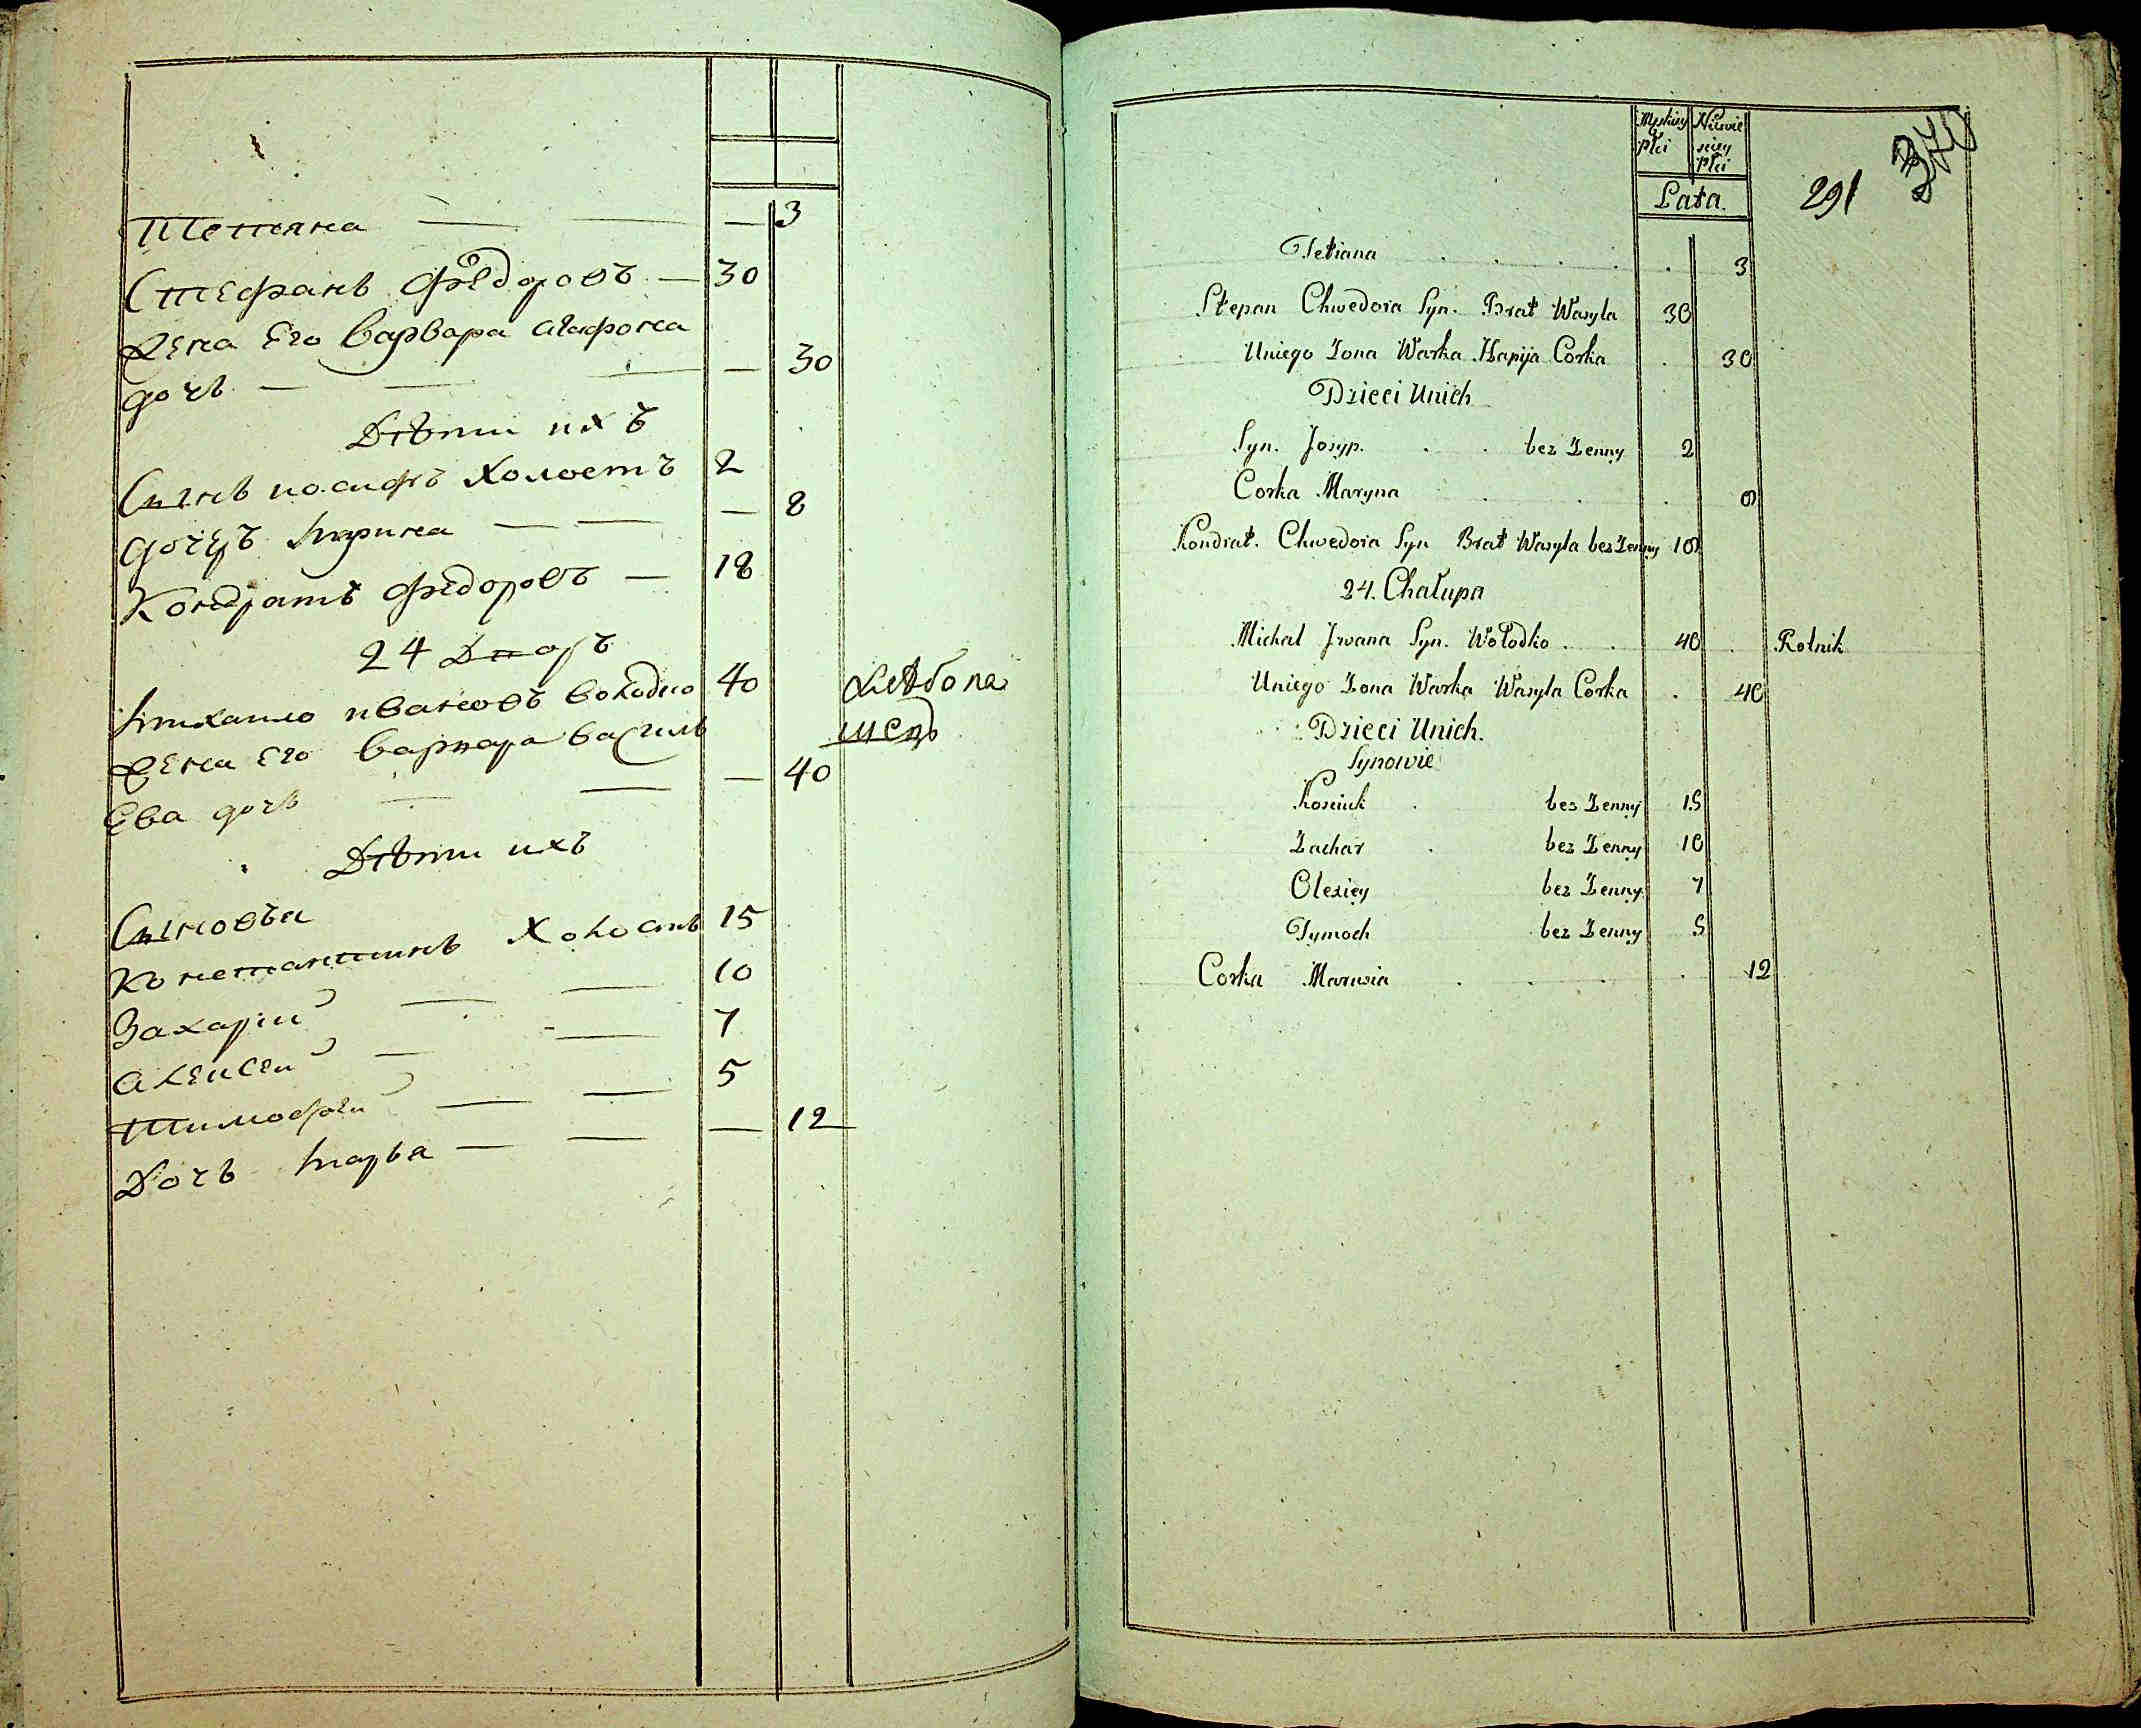 Тетяна — — — 3
Стефанъ Федоровъ — 30
Жена Его Варвара Агафона
дочь — — — — 30
Дѣти ихъ
Сынъ иосифъ холостъ 2
дочеръ Марина — — — 8
Кондратъ Федоровъ — 18
24 Дворъ
Михаило ивановъ володко 40 хлѣбопа
Жена Его Варвара Василь шецъ
Ева дочь — — — 40
Дѣти ихъ
Сыновья
Константинъ холостъ 15
Захарий — — 10
Алексей — — 7
Тимофей — — 5
Дочь Марья — — — 12
Męskiey Płci Niewiesciey Płci
Lata.
291
370
Tetiana . . . . . 3
Stepan Chwedora Syn. Brat Wasyla 30
Uniego Zona Warka Hapija Corka . 30
Dzieci Unich
Syn. Josyp. . . bez Zenny 2
Corka Maryna . . . 8
Kondrat. Chwedora Syn Brat Wasyla bez Zenny 18
24. Chałupa
Michal Jwana Syn. Wołodko . . 40 . Rolnik
Uniego Zona Warka Wasyla Corka . 40
Dzieci Unich.
Synowie
Kosciuk . bez Zenny 15
Zachar . bez Zenny 10
Olexiey bez Zenny. 7
Tymoch bez Zenny 5
Corka Marusia . . . . 12